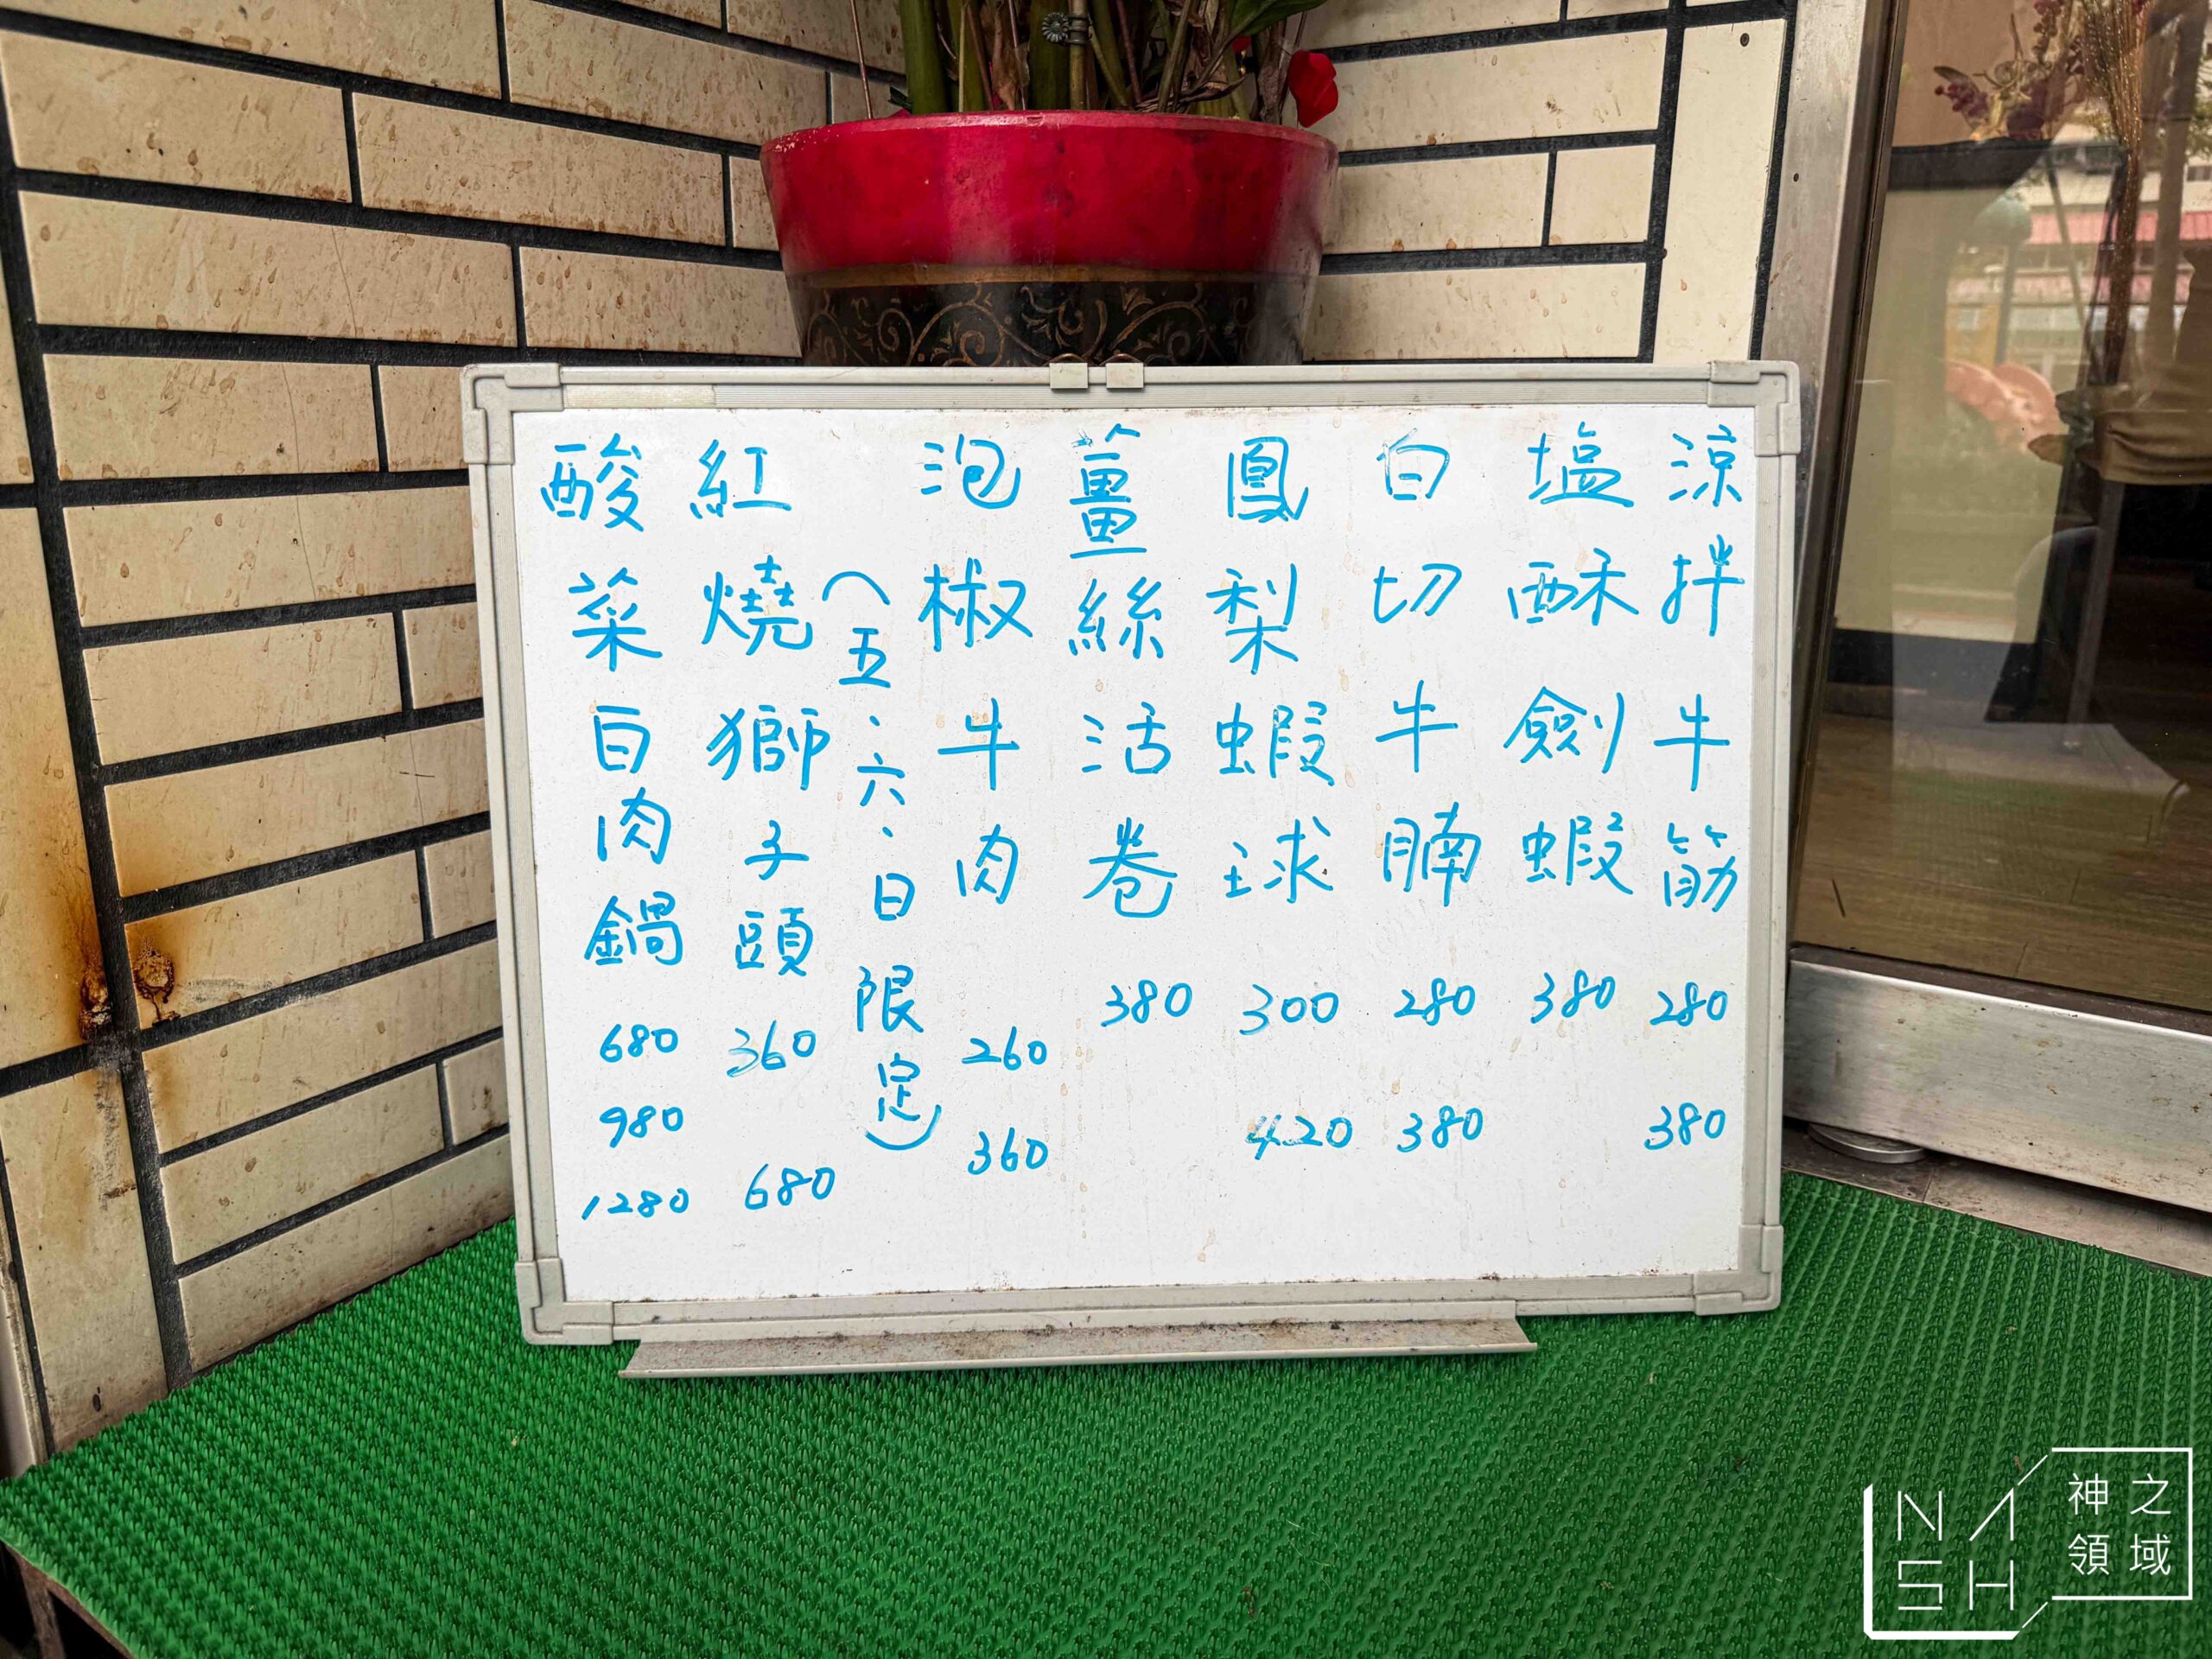 涼拌牛筋 280 380
塩酥劍蝦 380
白切牛腩 280 380
鳳梨蝦球 300 420
薑絲活卷 380
泡椒牛肉 260 360
(五、六、日限定)
紅燒獅子頭 360 680
酸菜白肉鍋 680 980 1280
NASH
神之領域